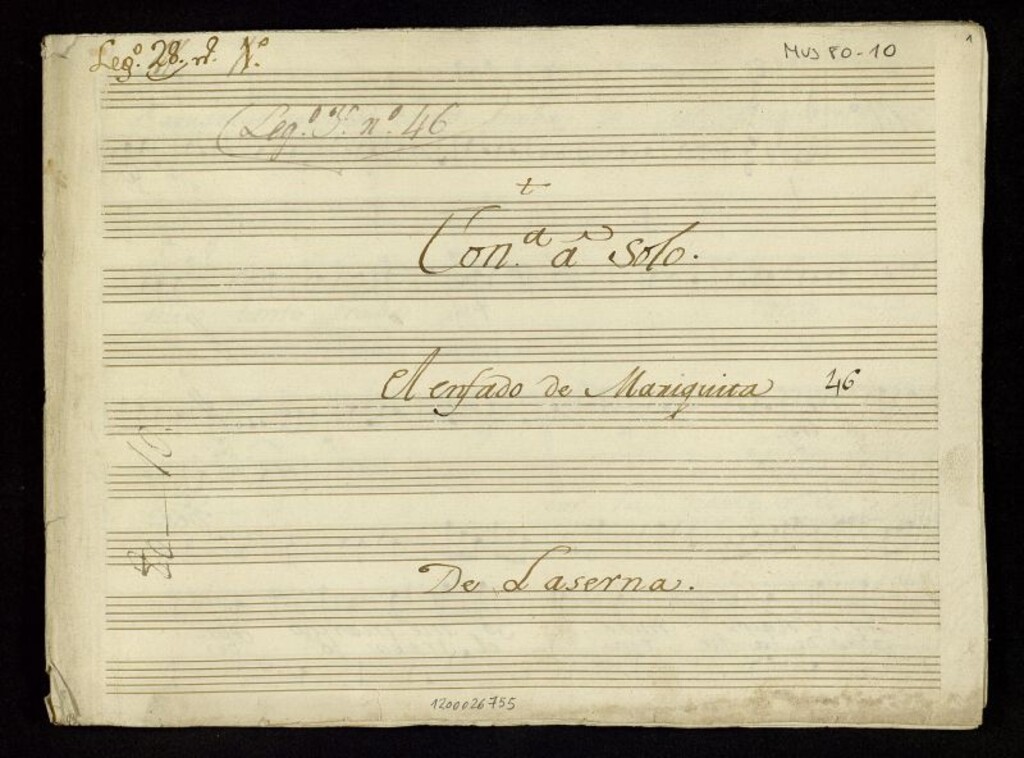 Leg.º 28. n.º 1.º
Mus 80-10
1
Leg.º 3.º n.º 46
Ton.ª â Solo.
El enfado de Mariquita 46
80-10.
De Laserna.
1200026755